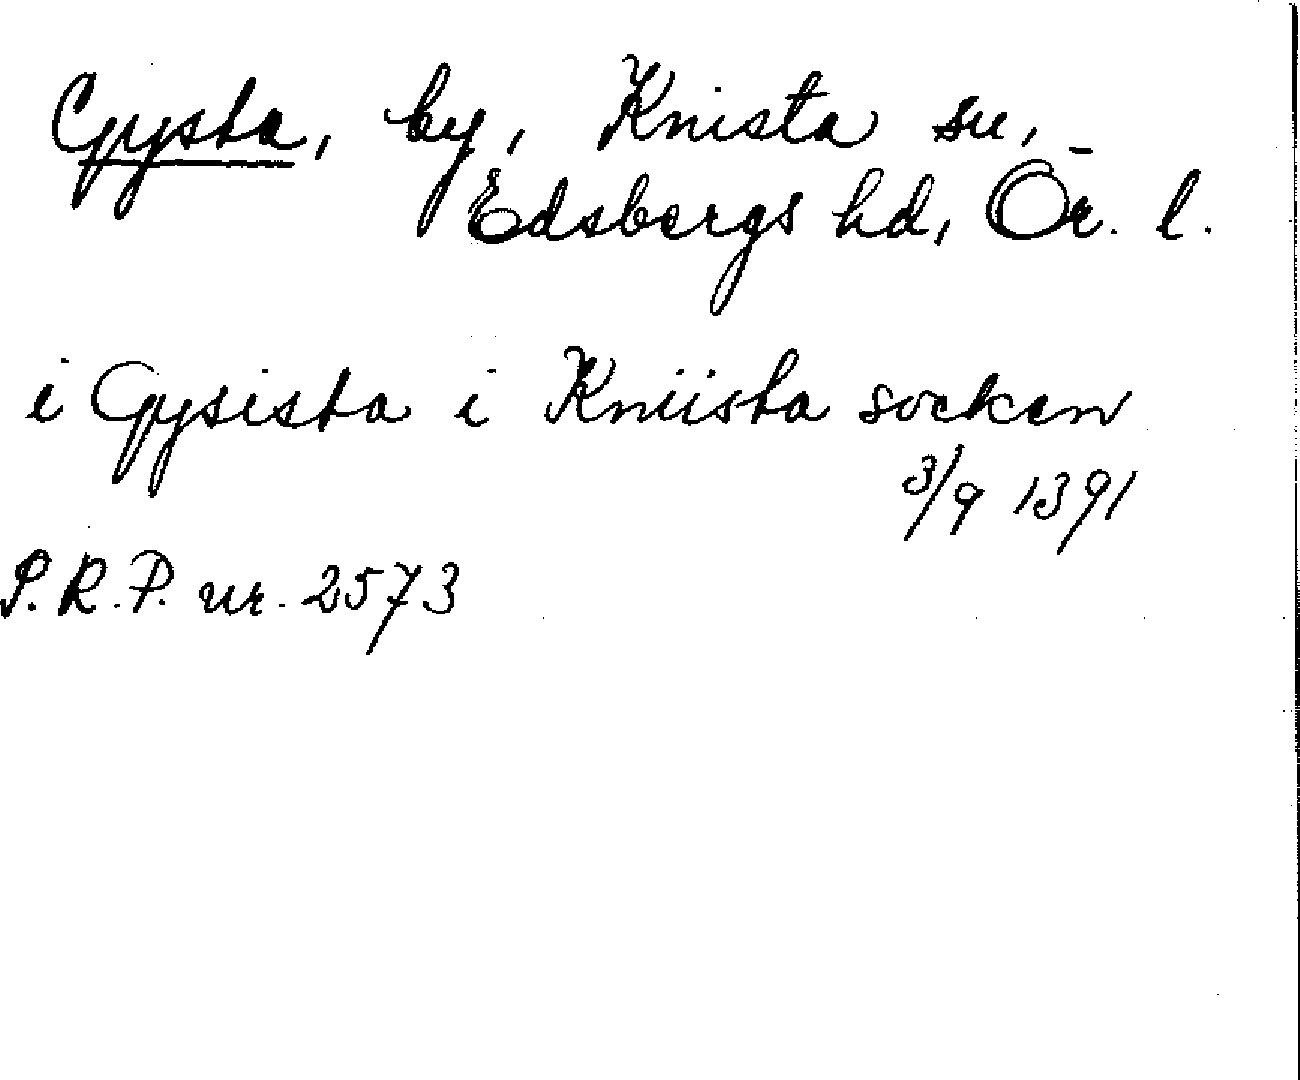 Gysta, by, Knista sn,
Edsbergs hd, Ör. l.
i Gysista i Kniista socken
3/9 1391
P.R.P. nr. 2573